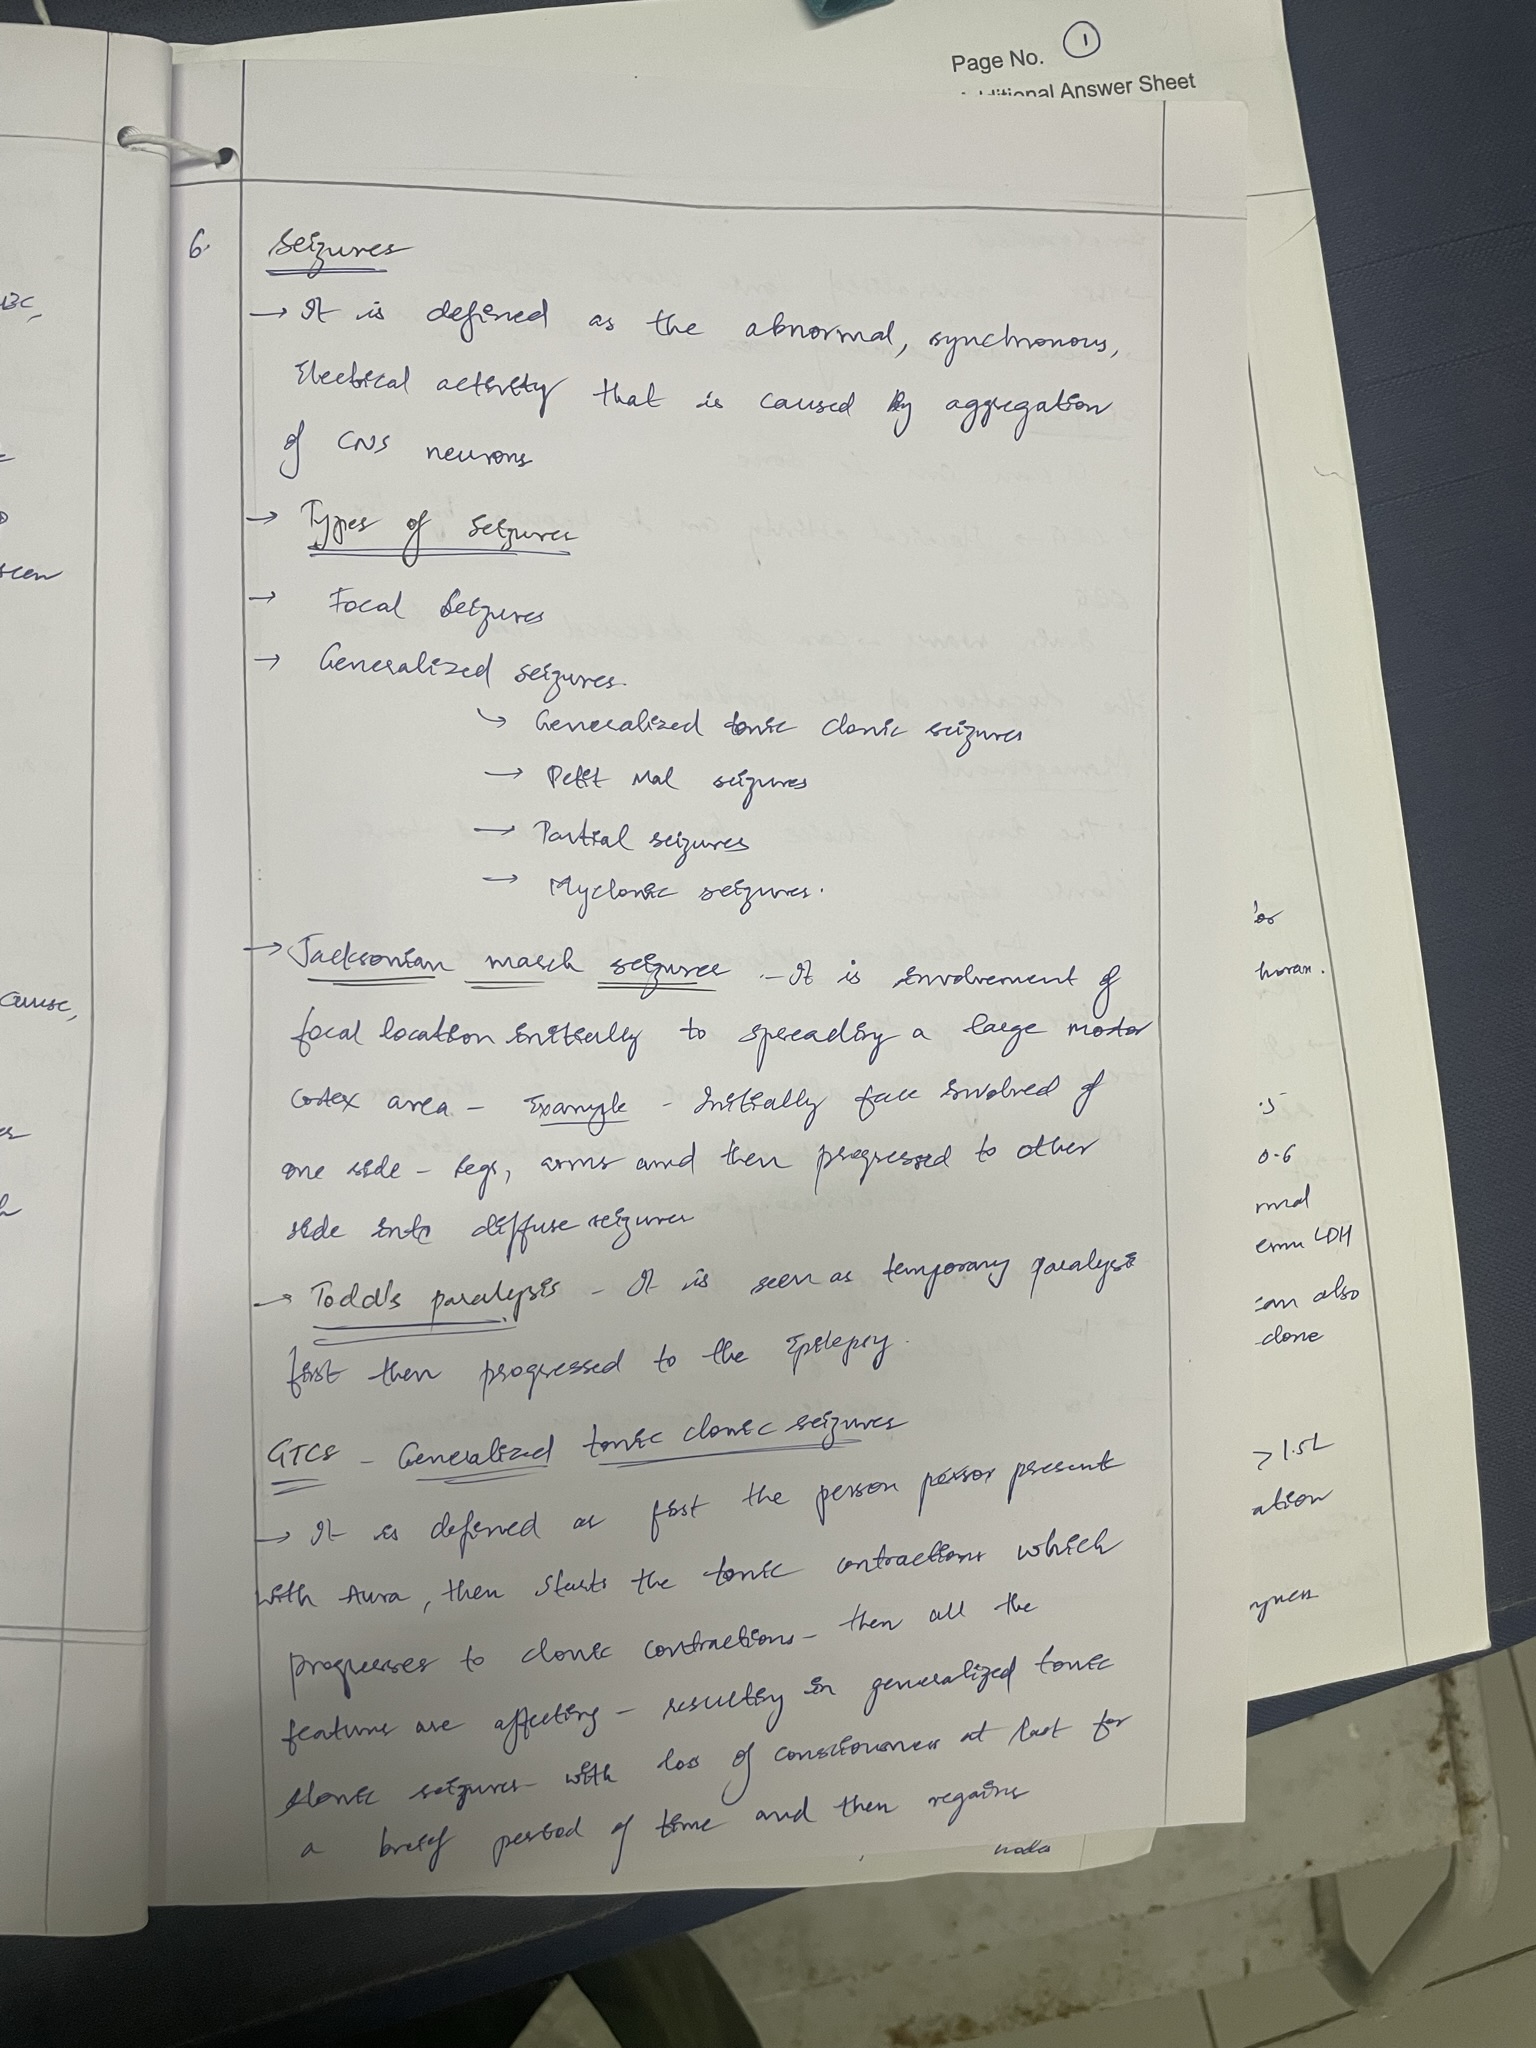 Page No. 1
Additional Answer Sheet
6. Seizures
→ It is defined as the abnormal, synchronous,
Electical activity that is caused by aggregation
of CNS neurons
→ Types of seizures
→ Focal Seizures
→ Generalized seizures.
↳ Generalized tonic clonic seizures
→ Petit Mal seizures
→ Partial seizures
→ Myclonic seizures.
→ Jacksonian march seizures - It is involvement of
focal location initially to spreading a large motor
cortex area - Example - Initially face involved of
one side - legs, arms and then progressed to other
side into diffuse seizures
→ Todd's paralysis - It is seen as temporary paralysis
first then progressed to the Epilepsy.
GTCS - Generalized tonic clonic seizures
→ It is defined as first the person person present
with Aura, then starts the tonic contractions which
progresses to clonic contractions - then all the
features are affecting - resulting in generalized tonic
clonic seizures with loss of consciousness at last for
a breif period of time and then regains
BC,
seen
cause,
horax.
.5
0.6
rmal
erum LDH
can also
done
> 1.5L
ation